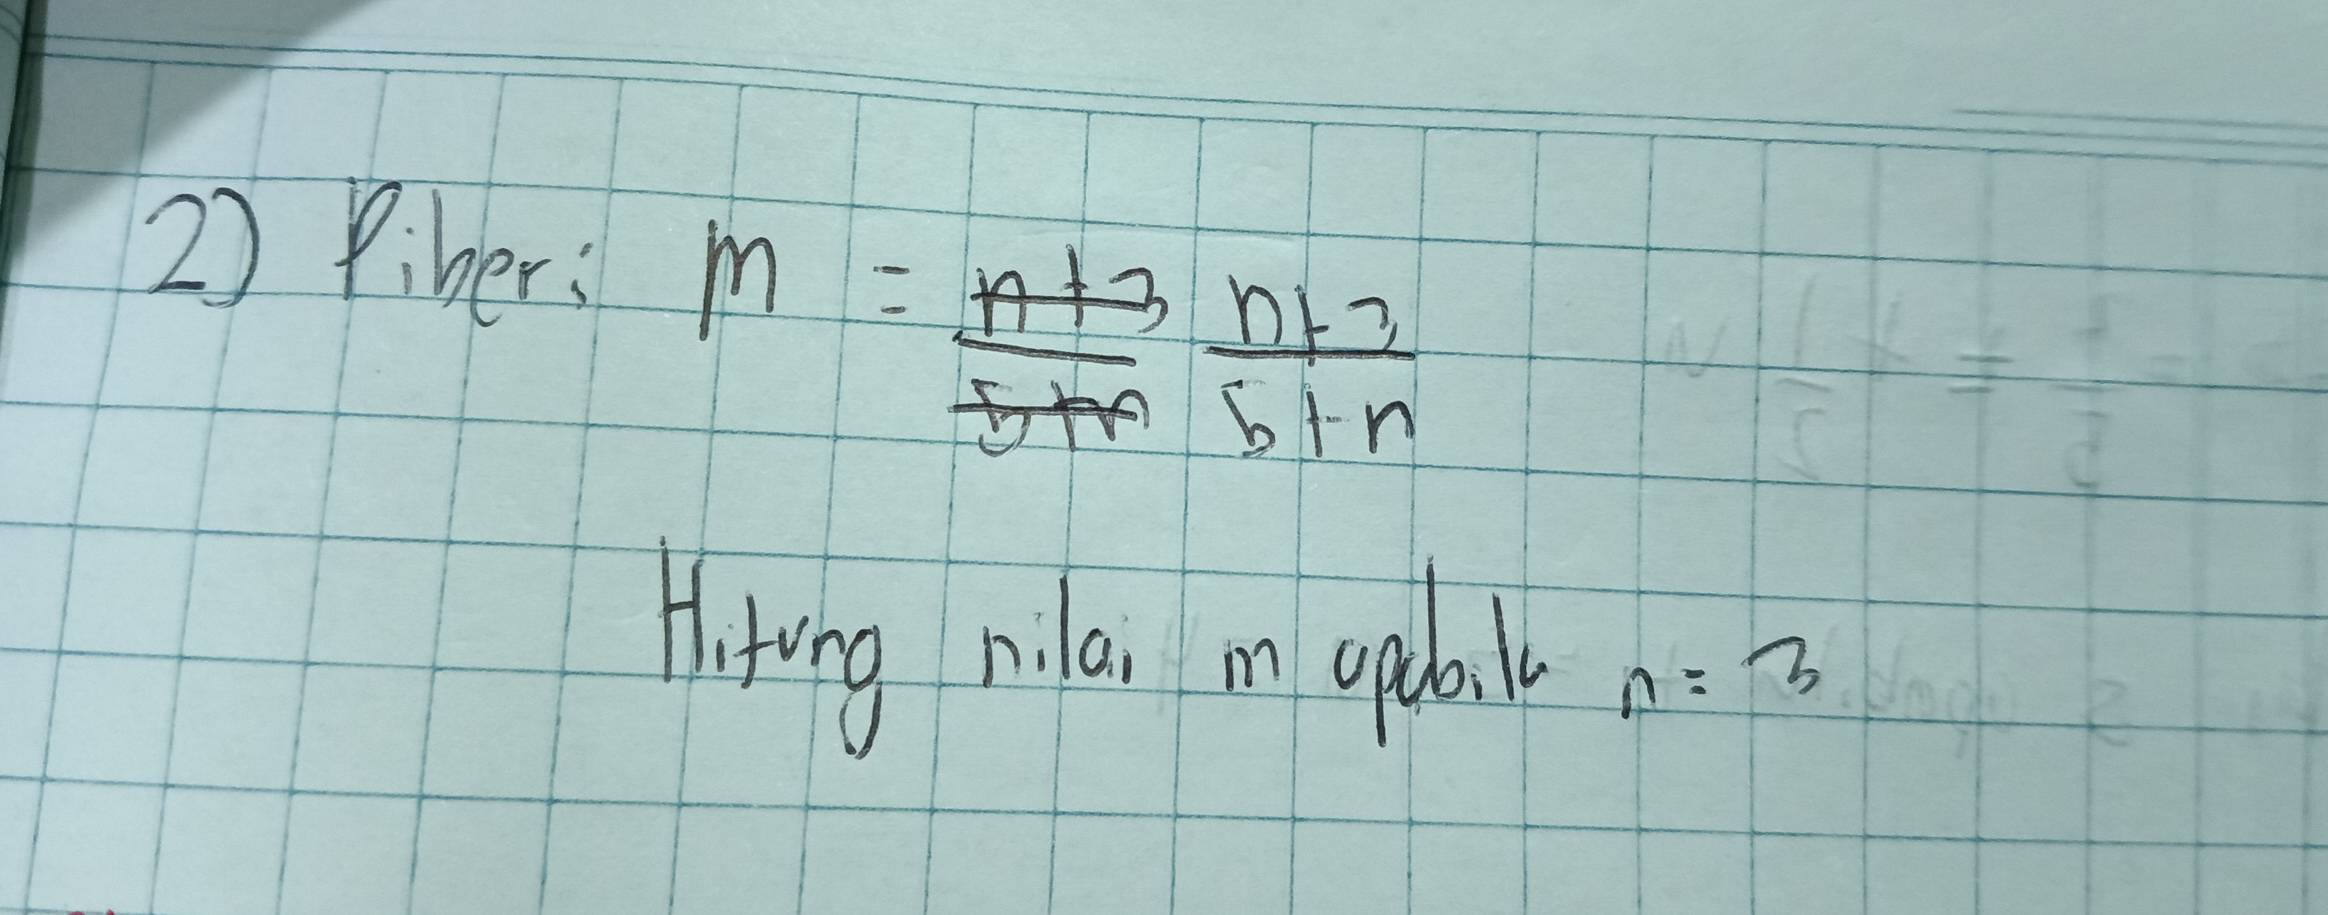 2) Diber: m = n+3 / 5+n n+3 / 5+n
Hitung nilai m apabila n = 3